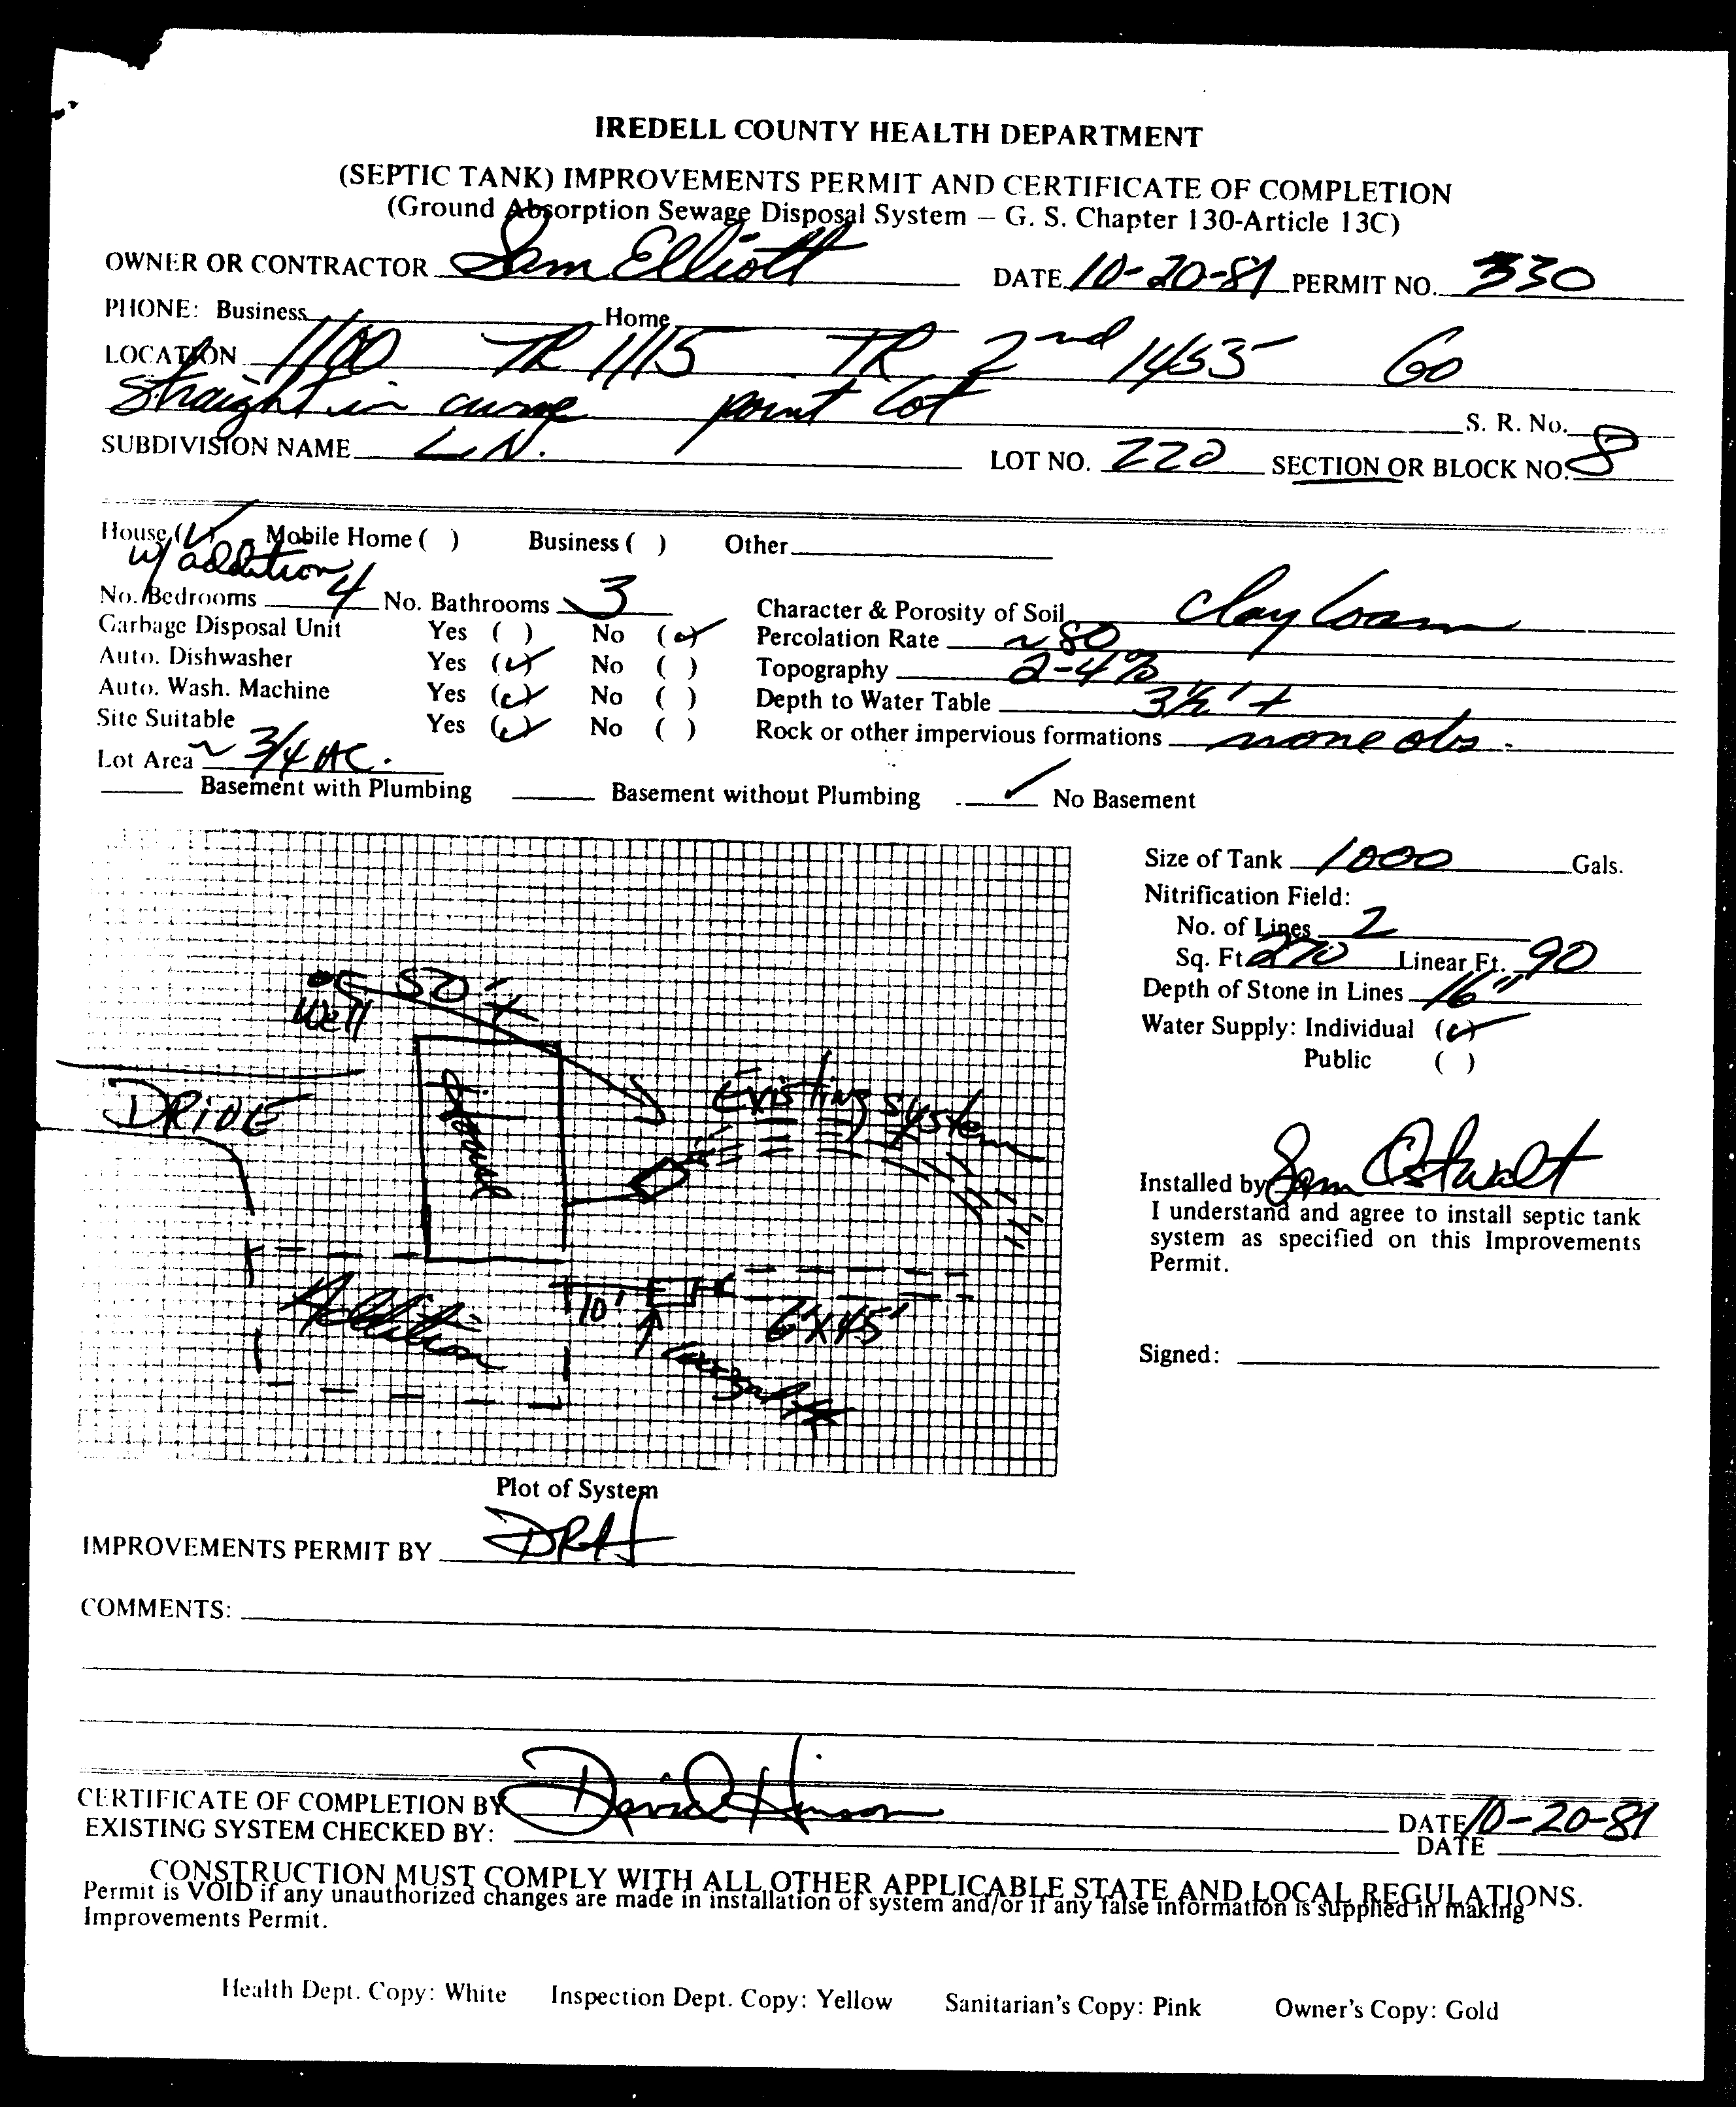 IREDELL COUNTY HEALTH DEPARTMENT
(SEPTIC TANK) IMPROVEMENTS PERMIT AND CERTIFICATE OF COMPLETION
(Ground Absorption Sewage Disposal System – G. S. Chapter 130-Article 13C)
OWNER OR CONTRACTOR Sam Elliott DATE 10-20-81 PERMIT NO. 330
PHONE: Business Home
LOCATION 1100 TR 1115 TR 2nd 1453 Go
straight in curve point lot S. R. No.
SUBDIVISION NAME L.N. LOT NO. 220 SECTION OR BLOCK NO. 8
House (✓) Mobile Home ( ) Business ( ) Other
w/ addition
No. Bedrooms 4 No. Bathrooms 3 Character & Porosity of Soil Clay Loam
Garbage Disposal Unit Yes ( ) No (✓) Percolation Rate ~ 80
Auto. Dishwasher Yes (✓) No ( ) Topography 2-4%
Auto. Wash. Machine Yes (✓) No ( ) Depth to Water Table 3½'+
Site Suitable Yes (✓) No ( ) Rock or other impervious formations none obs.
Lot Area ~ 3/4 AC.
Basement with Plumbing Basement without Plumbing ✓ No Basement
Size of Tank 1000 Gals.
Nitrification Field:
No. of Lines 2
Sq. Ft. 270 Linear Ft. 90
Depth of Stone in Lines 16"
Water Supply: Individual (✓)
Public ( )
50'+
Well
DRIVE
House
Existing System
Addition
10'
6'x45'
Installed by Sam Ostwalt
I understand and agree to install septic tank
system as specified on this Improvements
Permit.
Signed:
Plot of System
IMPROVEMENTS PERMIT BY DRH
COMMENTS:
CERTIFICATE OF COMPLETION BY David Hinson DATE 10-20-81
EXISTING SYSTEM CHECKED BY: DATE
CONSTRUCTION MUST COMPLY WITH ALL OTHER APPLICABLE STATE AND LOCAL REGULATIONS.
Permit is VOID if any unauthorized changes are made in installation of system and/or if any false information is supplied in making
Improvements Permit.
Health Dept. Copy: White Inspection Dept. Copy: Yellow Sanitarian's Copy: Pink Owner's Copy: Gold